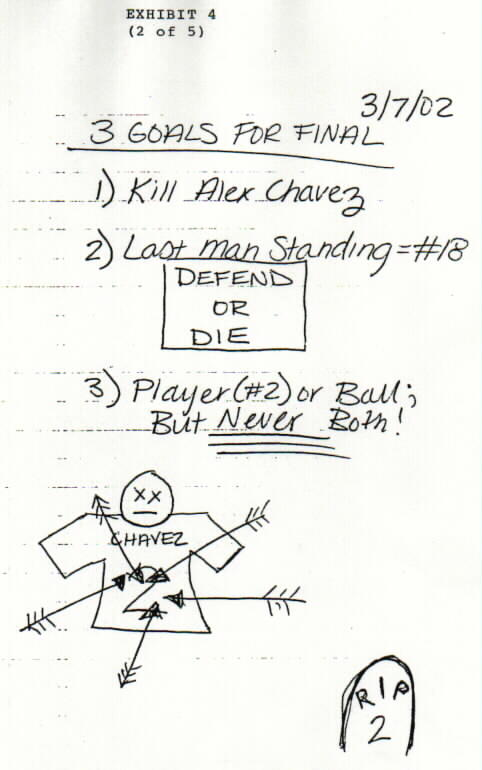 EXHIBIT 4
(2 of 5)
3/7/02
3 GOALS FOR FINAL
1) Kill Alex Chavez
2) Last man Standing = #18
DEFEND
OR
DIE
3) Player (#2) or Ball;
But Never Both!
CHAVEZ
2
RIP
2